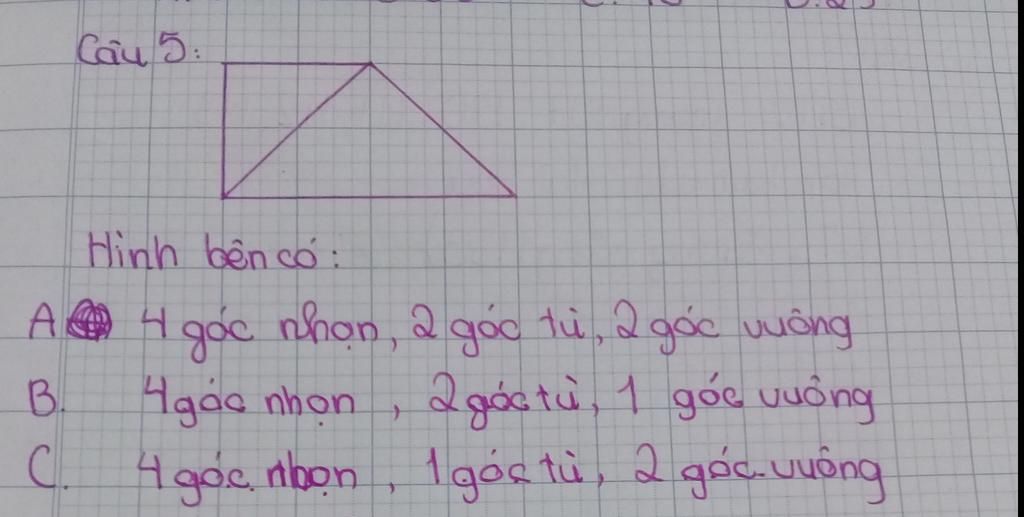 Câu 5:
Hình bên có:
A 4 góc nhọn, 2 góc tù, 2 góc vuông
B. 4 góc nhọn, 2 góc tù, 1 góc vuông
C. 4 góc nhọn, 1 góc tù, 2 góc vuông